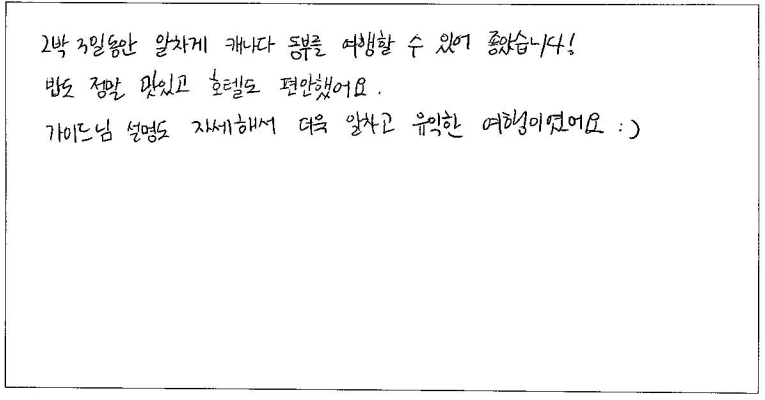 2박 3일동안 알차게 캐나다 동부를 여행할 수 있어 좋았습니다!
밥도 정말 맛있고 호텔도 편안했어요.
가이드님 설명도 자세해서 더욱 알차고 유익한 여행이였어요 :)